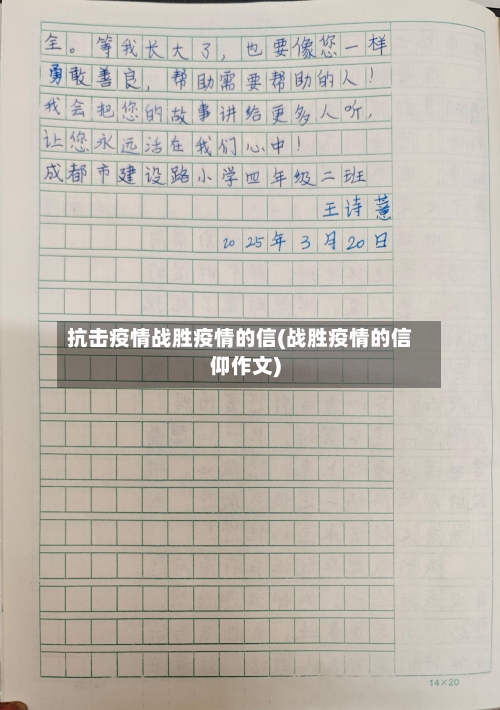 全。等我长大了，也要像您一样
勇敢善良，帮助需要帮助的人！
我会把您的故事讲给更多人听，
让您永远活在我们心中！
成都市建设路小学四年级二班
王诗薏
2025年3月20日
抗击疫情战胜疫情的信(战胜疫情的信
仰作文)
14×20